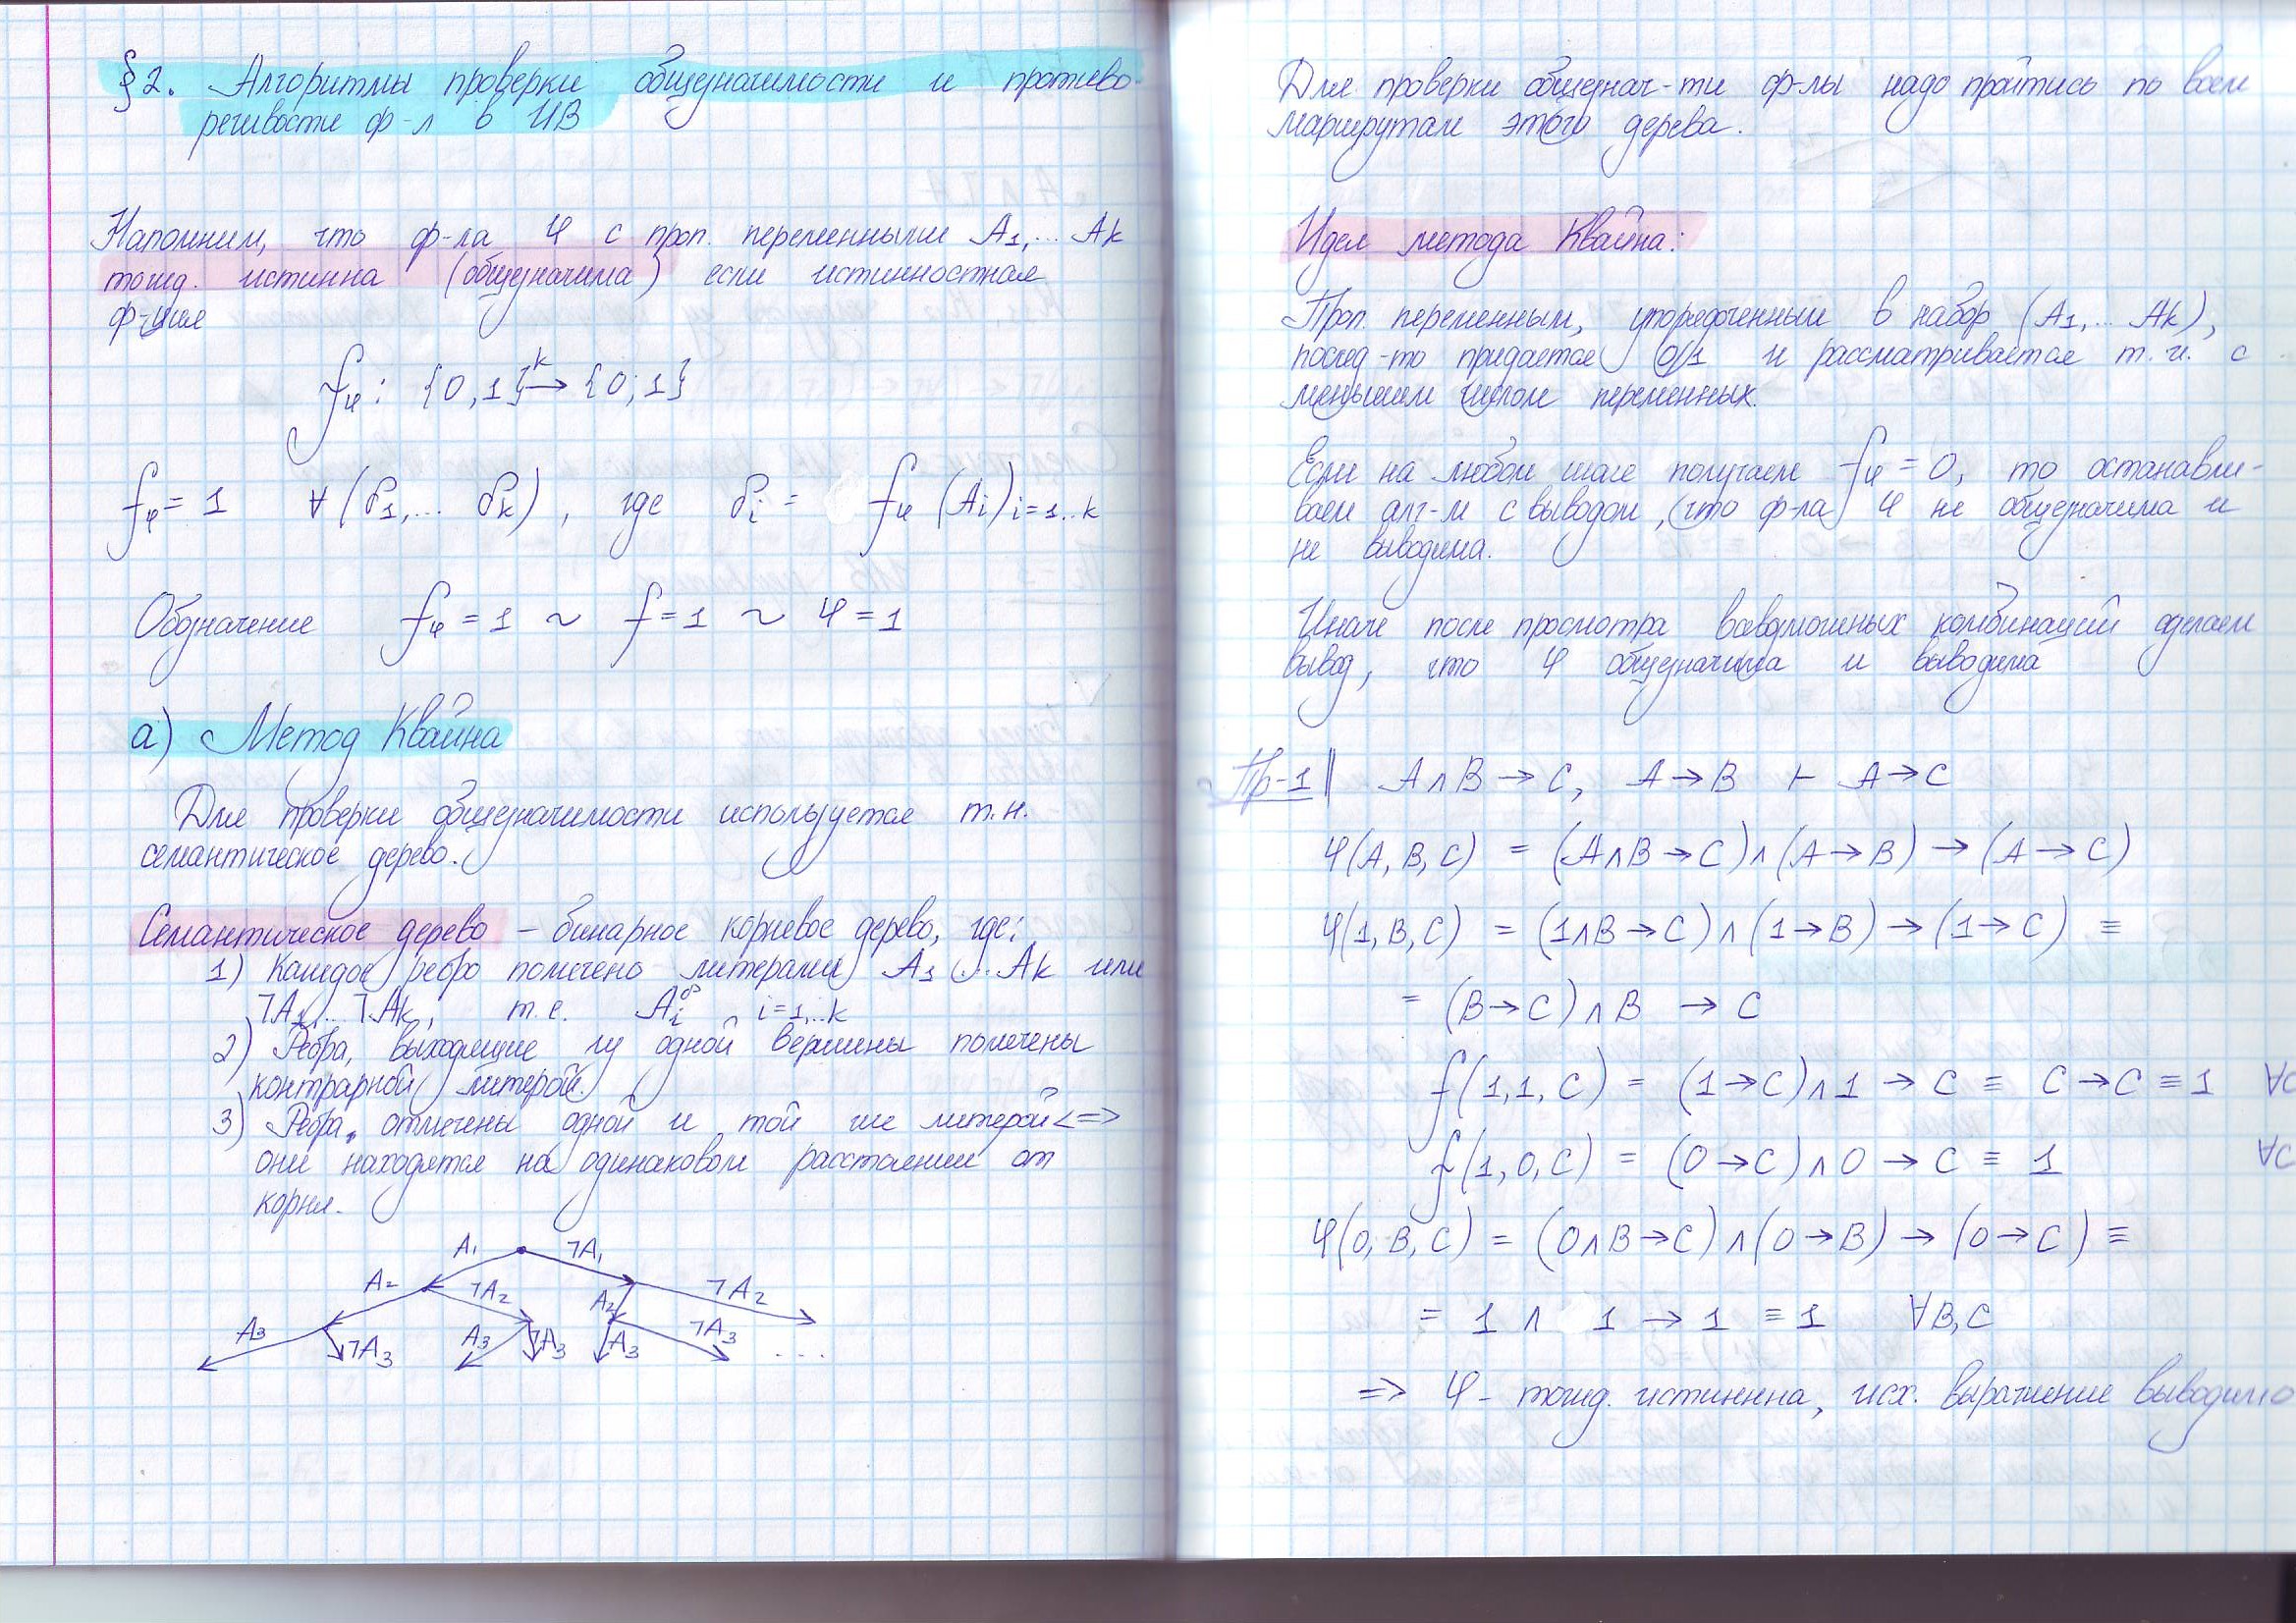 §2. Алгоритмы проверки общезначимости и противо-
речивости ф-л в ИВ
Напомним, что ф-ла φ с проп. переменными A1,... Ak
тожд. истинна (общезначима) если истинностная
ф-ция
fφ: {0,1}^k → {0;1}
fφ = 1 ∀(σ1,... σk), где σi = fφ (Ai) i=1..k
Обозначение fφ = 1 ~ f = 1 ~ φ = 1
а) Метод Квайна
Для проверки общезначимости используется т.н.
семантическое дерево.
Семантическое дерево – бинарное корневое дерево, где:
1) Каждое ребро помечено литерами A1 ... Ak или
¬A1,... ¬Ak, т.е. Ai^σ, i=1,..k
2) Ребра, выходящие из одной вершины помечены
контрарной литерой.
3) Ребра, отмечены одной и той же литерой <=>
они находятся на одинаковом расстоянии от
корня.
A1 ¬A1
A2 ¬A2 A2 ¬A2
A3 ¬A3 A3 ¬A3 A3 ¬A3 ...
Для проверки общезнач-ти ф-лы надо пройтись по всем
маршрутам этого дерева.
Идея метода Квайна:
Проп. переменным, упорядоченным в набор (A1,... Ak),
послед-то придается 0/1 и рассматривается т.и. с
меньшем числом переменных.
Если на любом шаге получаем fφ = 0, то останавли-
ваем алг-м с выводом, что ф-ла φ не общезначима и
не выводима.
Иначе после просмотра всевозможных комбинаций сделаем
вывод, что φ общезначима и выводима
Пр-1 A∧B → C, A → B ⊢ A → C
φ(A, B, C) = (A∧B → C) ∧ (A → B) → (A → C)
φ(1, B, C) = (1∧B → C) ∧ (1 → B) → (1 → C) ≡
= (B → C) ∧ B → C
f(1,1,C) = (1 → C) ∧ 1 → C ≡ C → C ≡ 1 ∀C
f(1,0,C) = (0 → C) ∧ 0 → C ≡ 1 ∀C
φ(0, B, C) = (0∧B → C) ∧ (0 → B) → (0 → C) ≡
= 1 ∧ 1 → 1 ≡ 1 ∀B,C
=> φ - тожд. истинна, исх. выражение выводимо